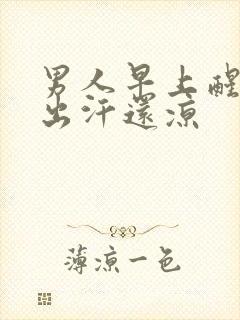 男人早上醒
出汗还凉
薄凉一色